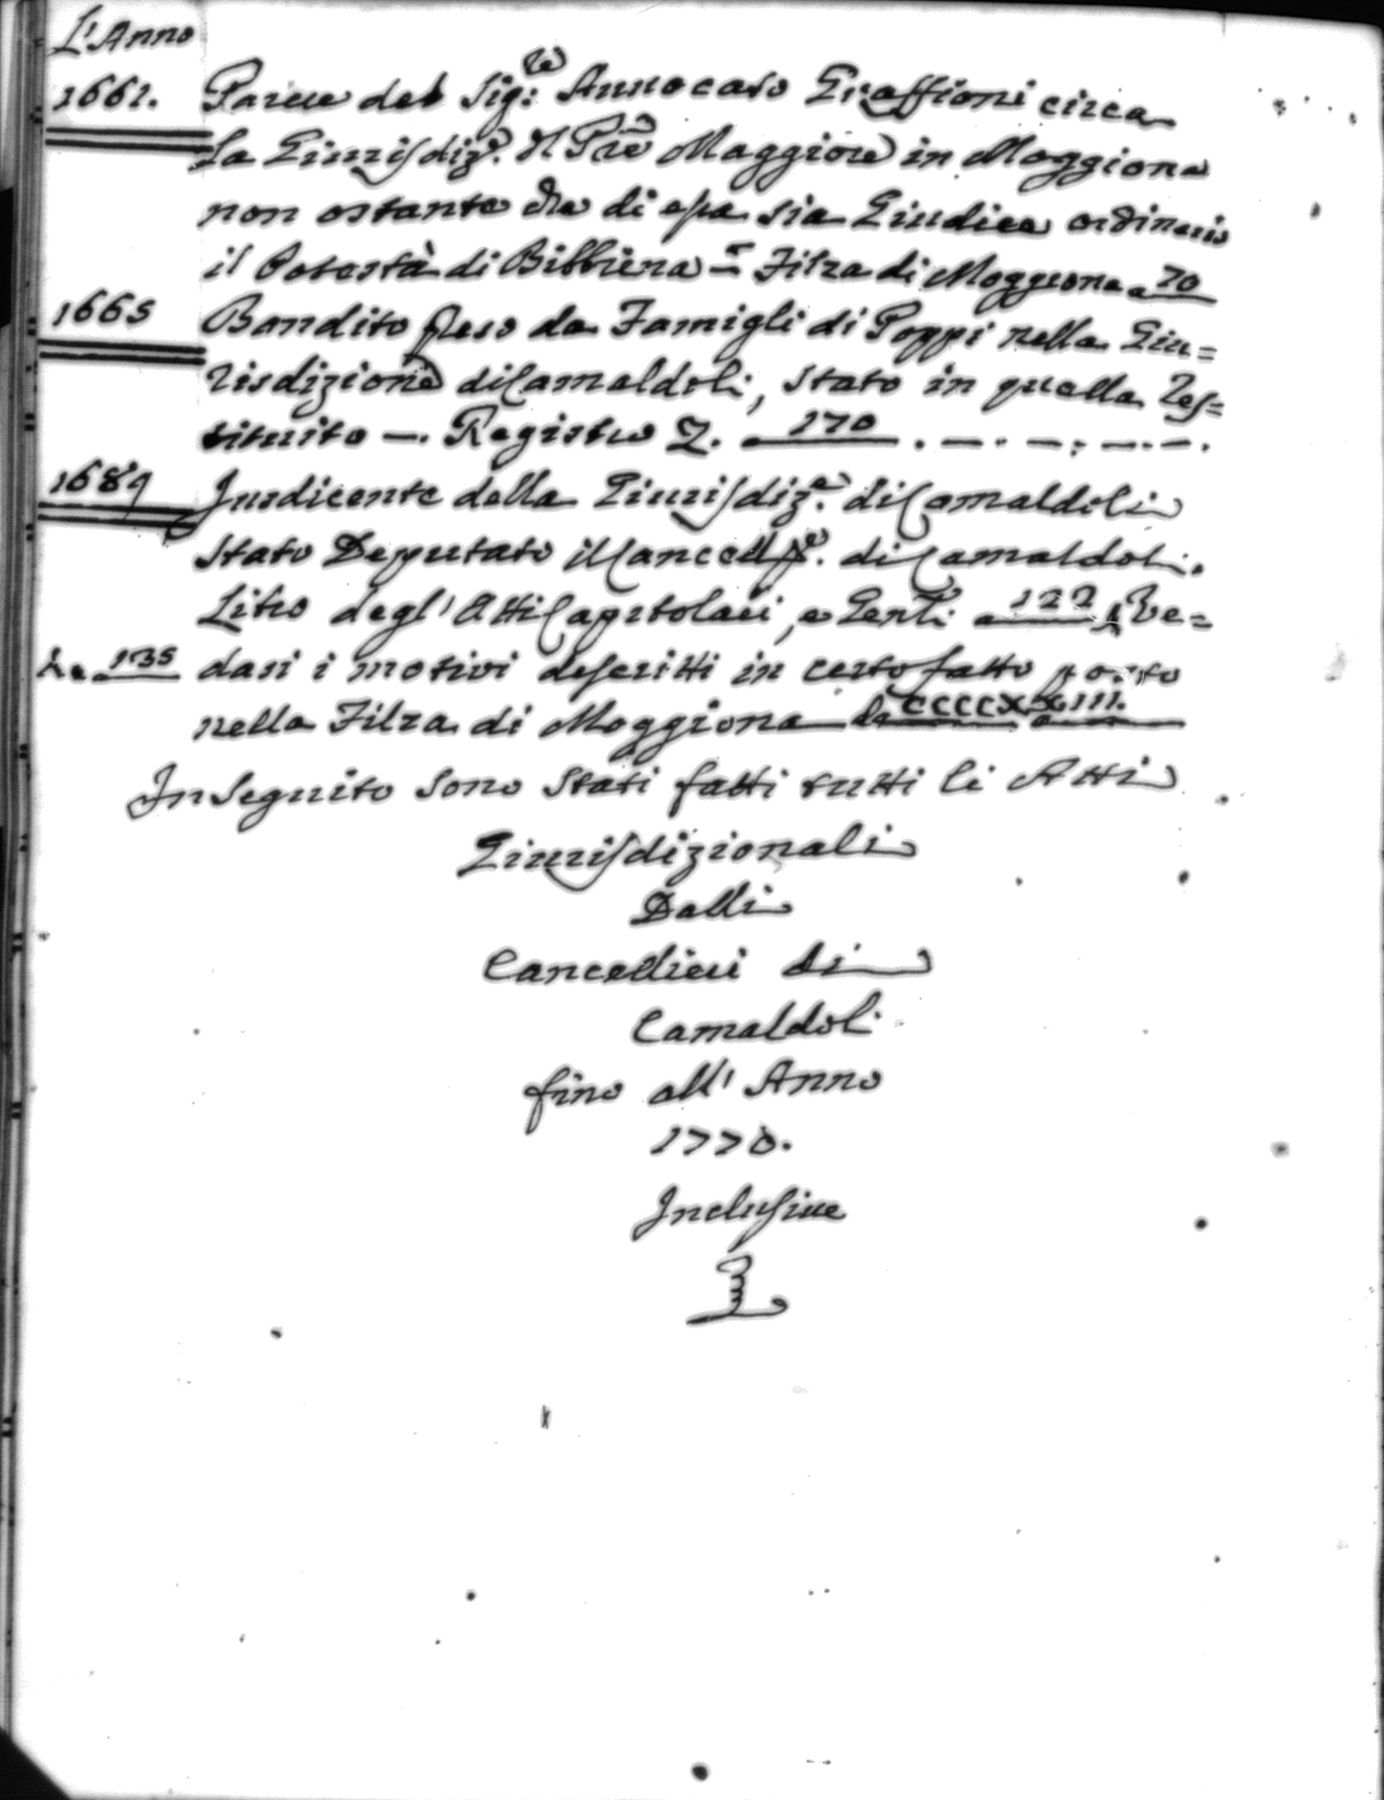 L'Anno
1661. Parere del Sig:re Annocaso Graffioni circa
La Giurisdiz.e del Pre Maggiore in Moggiona
non ostante che di essa sia Giudice ordinario
il Potestà di Bibbiena = Filza di Moggiona a 70
1665 Bandito preso da Famigli di Poppi nella Giu=
risdizione di Camaldoli, stato in quella res=
tituito —. Registro Z. 170 . — . — . — . — .
1689 Jusdicente della Giurisdiz.e di Camaldoli
stato Deputato il Cancell.re di Camaldoli.
Libro degl'Atti Capitolari, e Gesti a 122 e Ve=
da 135 dasi i motivi descritti in certo fatto posto
nella Filza di Moggiona da CCCCXXIII.
In seguito sono stati fatti tutti li Atti
Giurisdizionali
Dalli
Cancellieri di
Camaldoli
fino all'Anno
1770.
Inclusive